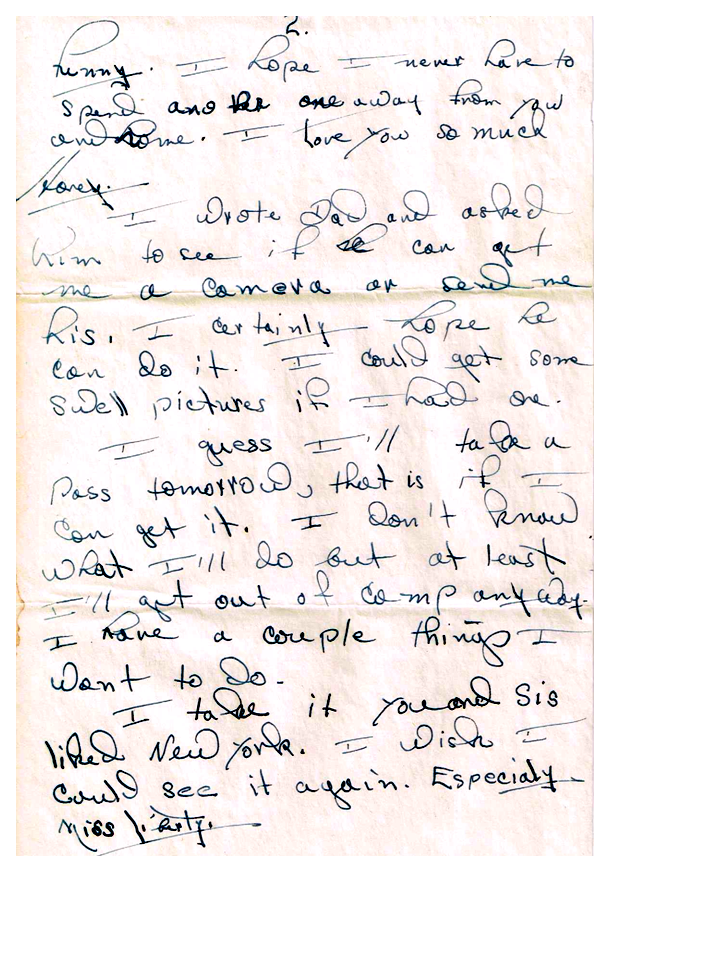 2.
funny. I hope I never have to
spend another one away from you
and home. I love you so much
Honey.
I wrote Dad and asked
him to see if he can get
me a camera or send me
his. I certainly hope he
can do it. I could get some
swell pictures if I had one.
I guess I'll take a
pass tomorrow, that is if I
can get it. I don't know
what I'll do but at least
I'll get out of camp anyway.
I have a couple things I
want to do.
I take it you and Sis
liked New York. I wish I
could see it again. Especialy
Miss liberty.